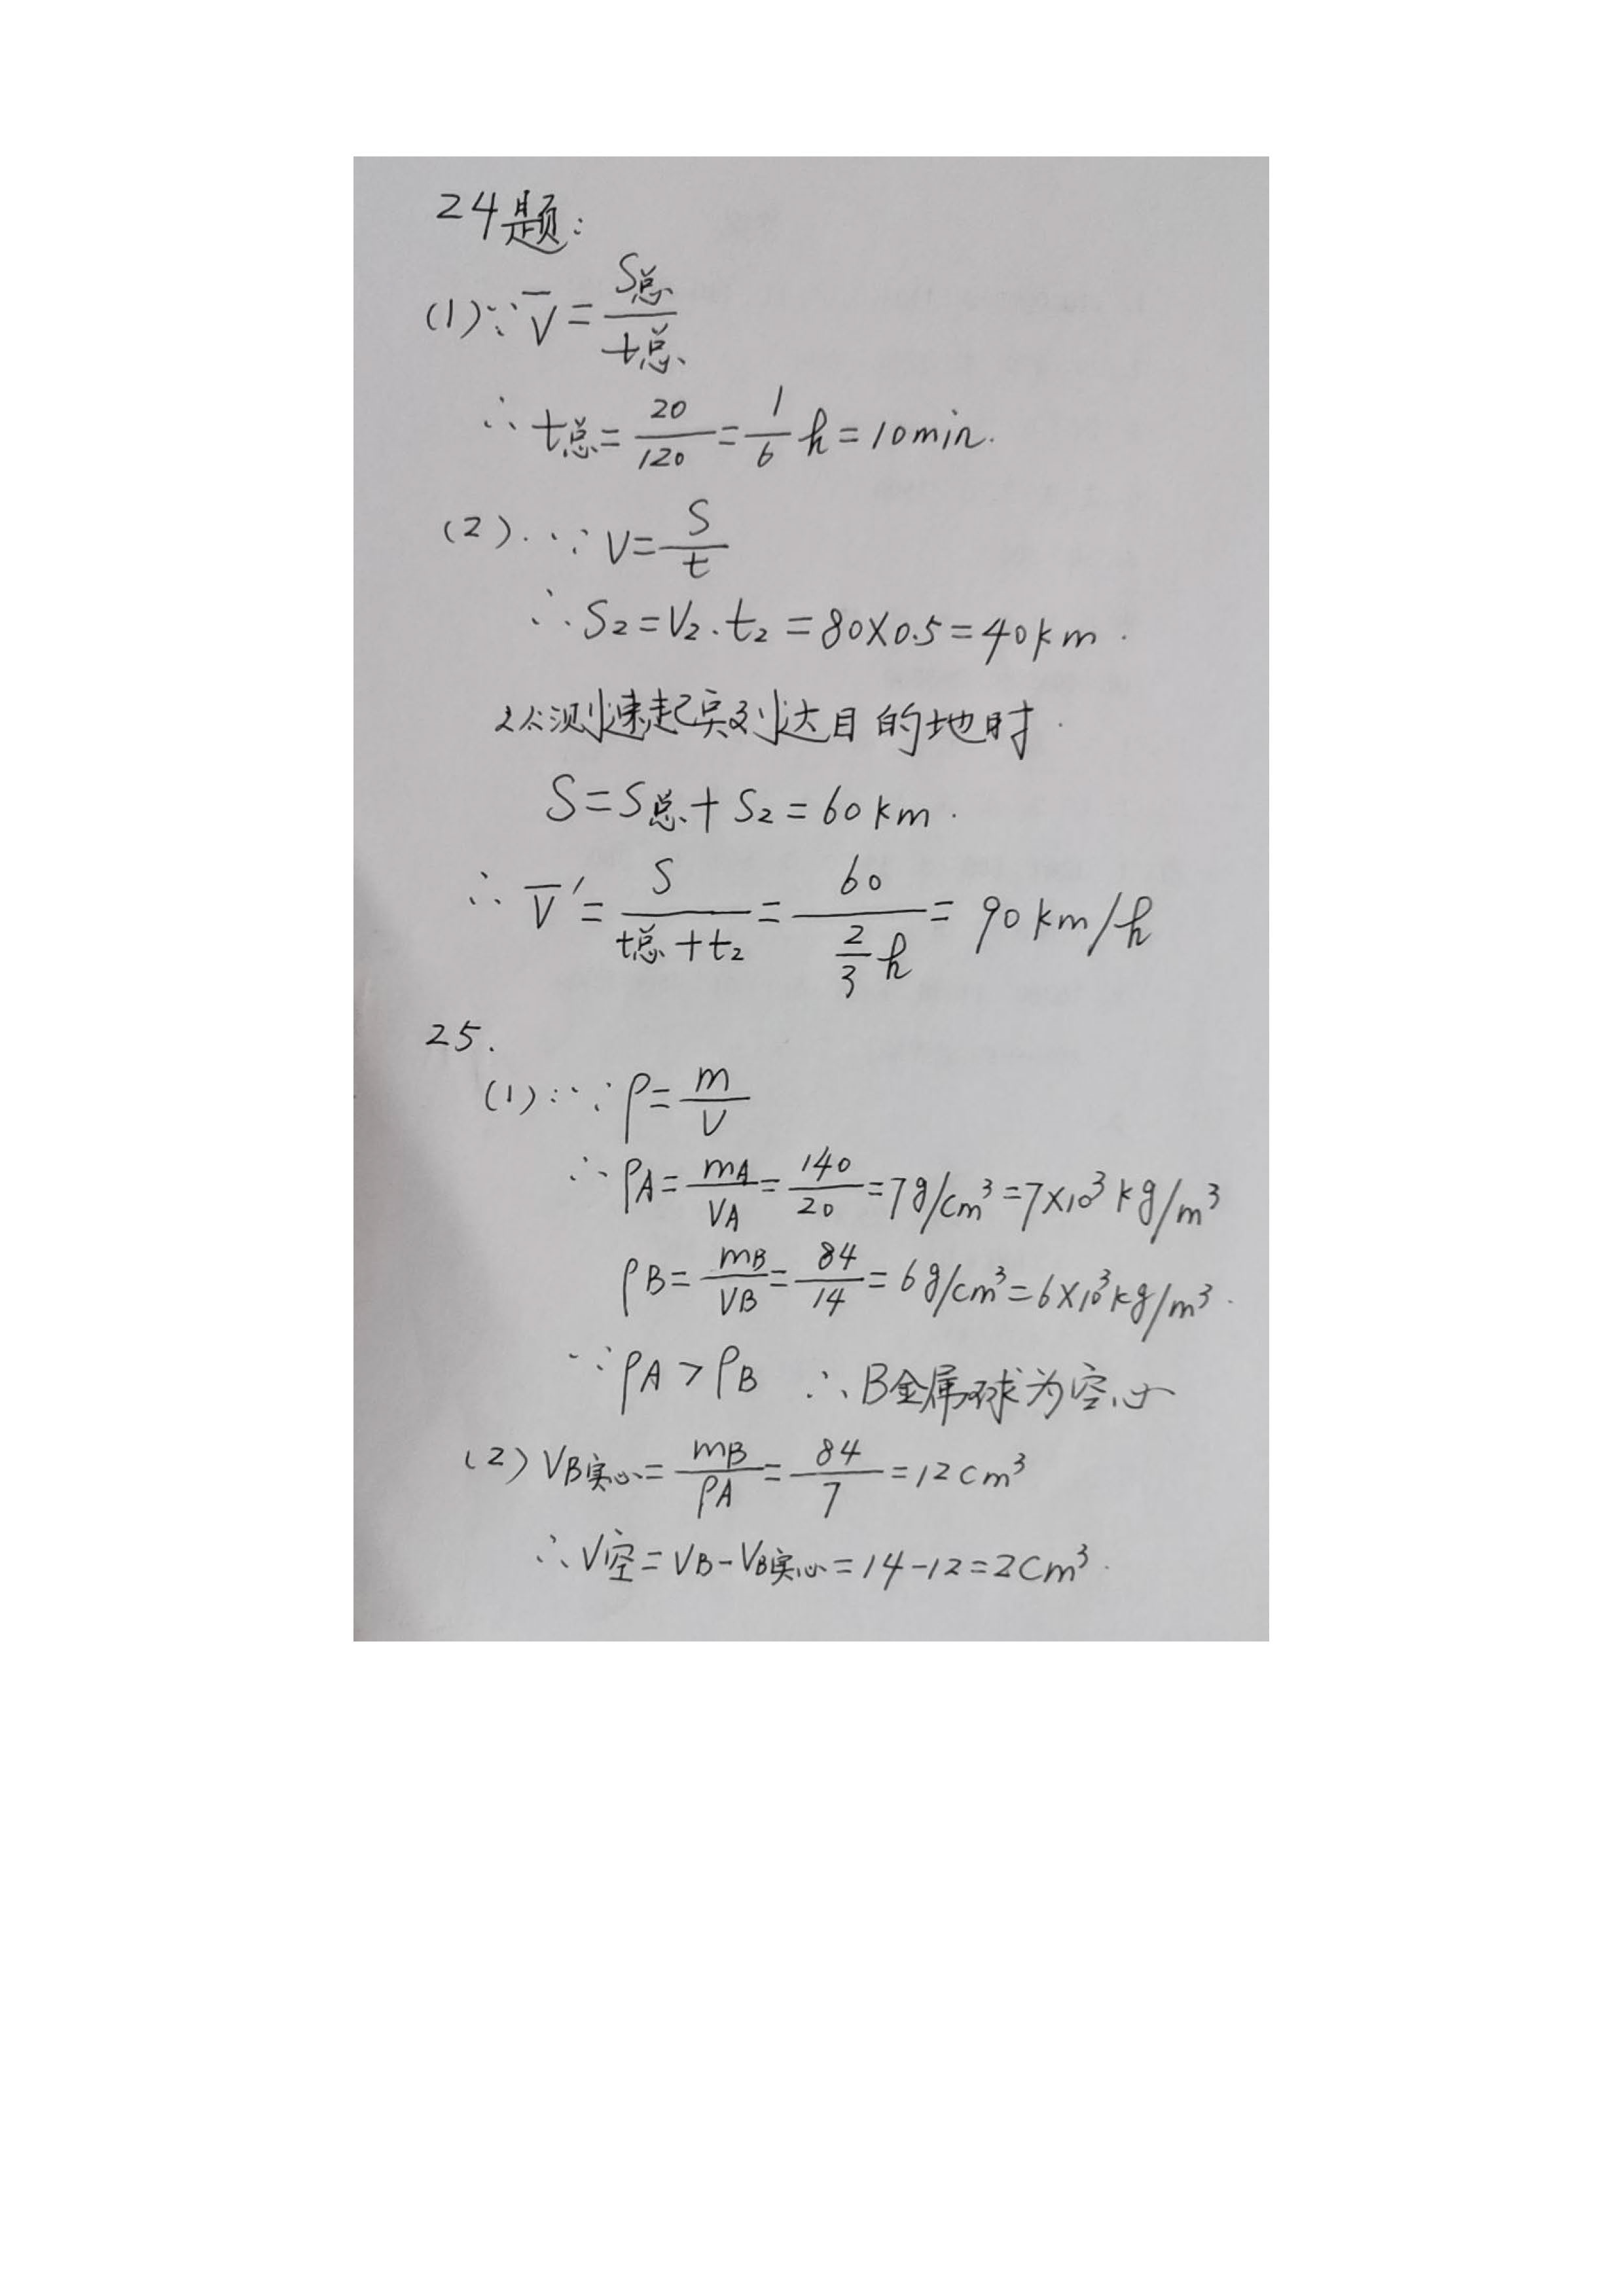 24题:
(1)∵ V̄ = S总/t总
∴ t总 = 20/120 = 1/6 h = 10min.
(2).∵ V = S/t
∴ S₂ = V₂.t₂ = 80×0.5 = 40km.
从测速起点到达目的地时.
S = S总 + S₂ = 60km.
∴ V̄′ = S/(t总+t₂) = 60/(2/3 h) = 90km/h
25.
(1):∵ ρ = m/V
∴ ρA = mA/VA = 140/20 = 7g/cm³ = 7×10³kg/m³
ρB = mB/VB = 84/14 = 6g/cm³ = 6×10³kg/m³.
∵ ρA > ρB ∴ B金属球为空心
(2) VB实心 = mB/ρA = 84/7 = 12cm³
∴ V空 = VB - VB实心 = 14-12 = 2cm³.